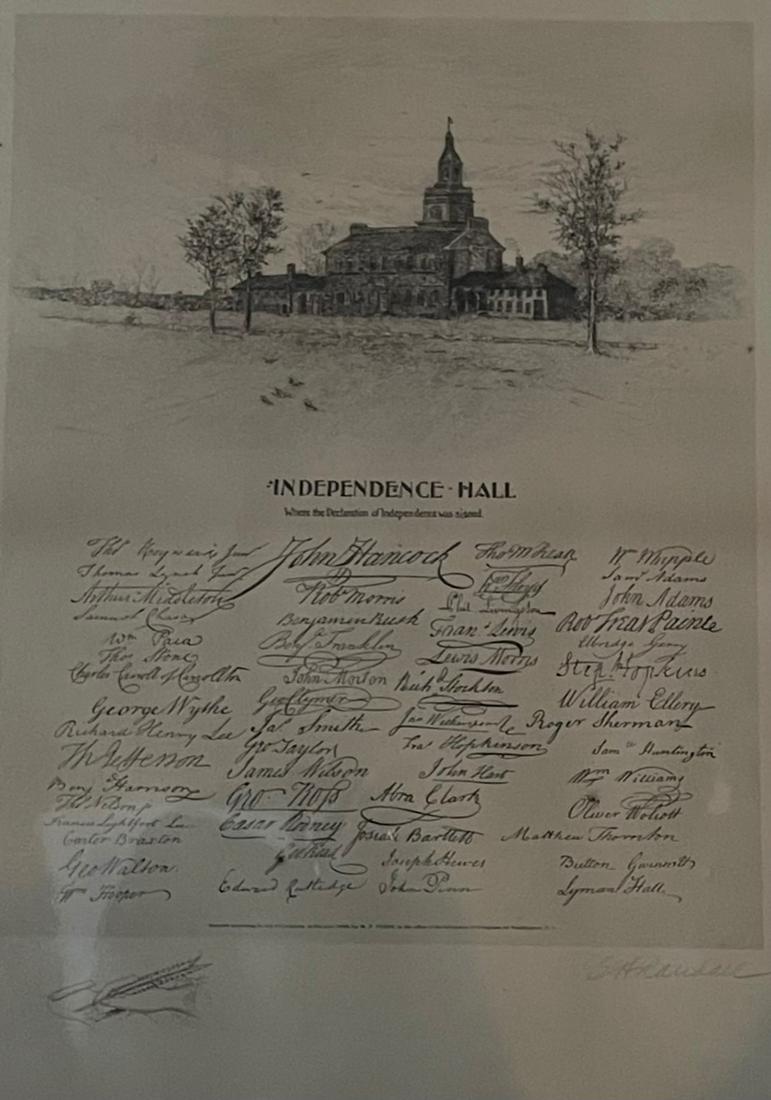 INDEPENDENCE - HALL
Where the Declaration of Independence was signed.
John Hancock
Thos M:Kean
Wm Whipple
Thomas Lynch Junr
Saml Adams
Arthur Middleton
Robt Morris
John Adams
Samuel Chase
Phil. Livingston
Benjamin Rush
Robt Treat Paine
Wm Paca
Benja Franklin
Frans Lewis
Elbridge Gerry
Thos Stone
Lewis Morris
Step. Hopkins
Charles Carroll of Carrollton
John Morton
Richd Stockton
George Wythe
Geo Clymer
William Ellery
Richard Henry Lee
Jas Smith
Jno Witherspoon
Roger Sherman
Th Jefferson
Geo Taylor
Fras Hopkinson
Saml Huntington
James Wilson
John Hart
Wm Williams
Benj Harrison
Geo. Ross
Abra Clark
Oliver Wolcott
Thos Nelson jr
Francis Lightfoot Lee
Caesar Rodney
Josiah Bartlett
Matthew Thornton
Carter Braxton
Geo Read
Joseph Hewes
Button Gwinnett
Geo Walton
Wm Hooper
Edward Rutledge
John Penn
Lyman Hall